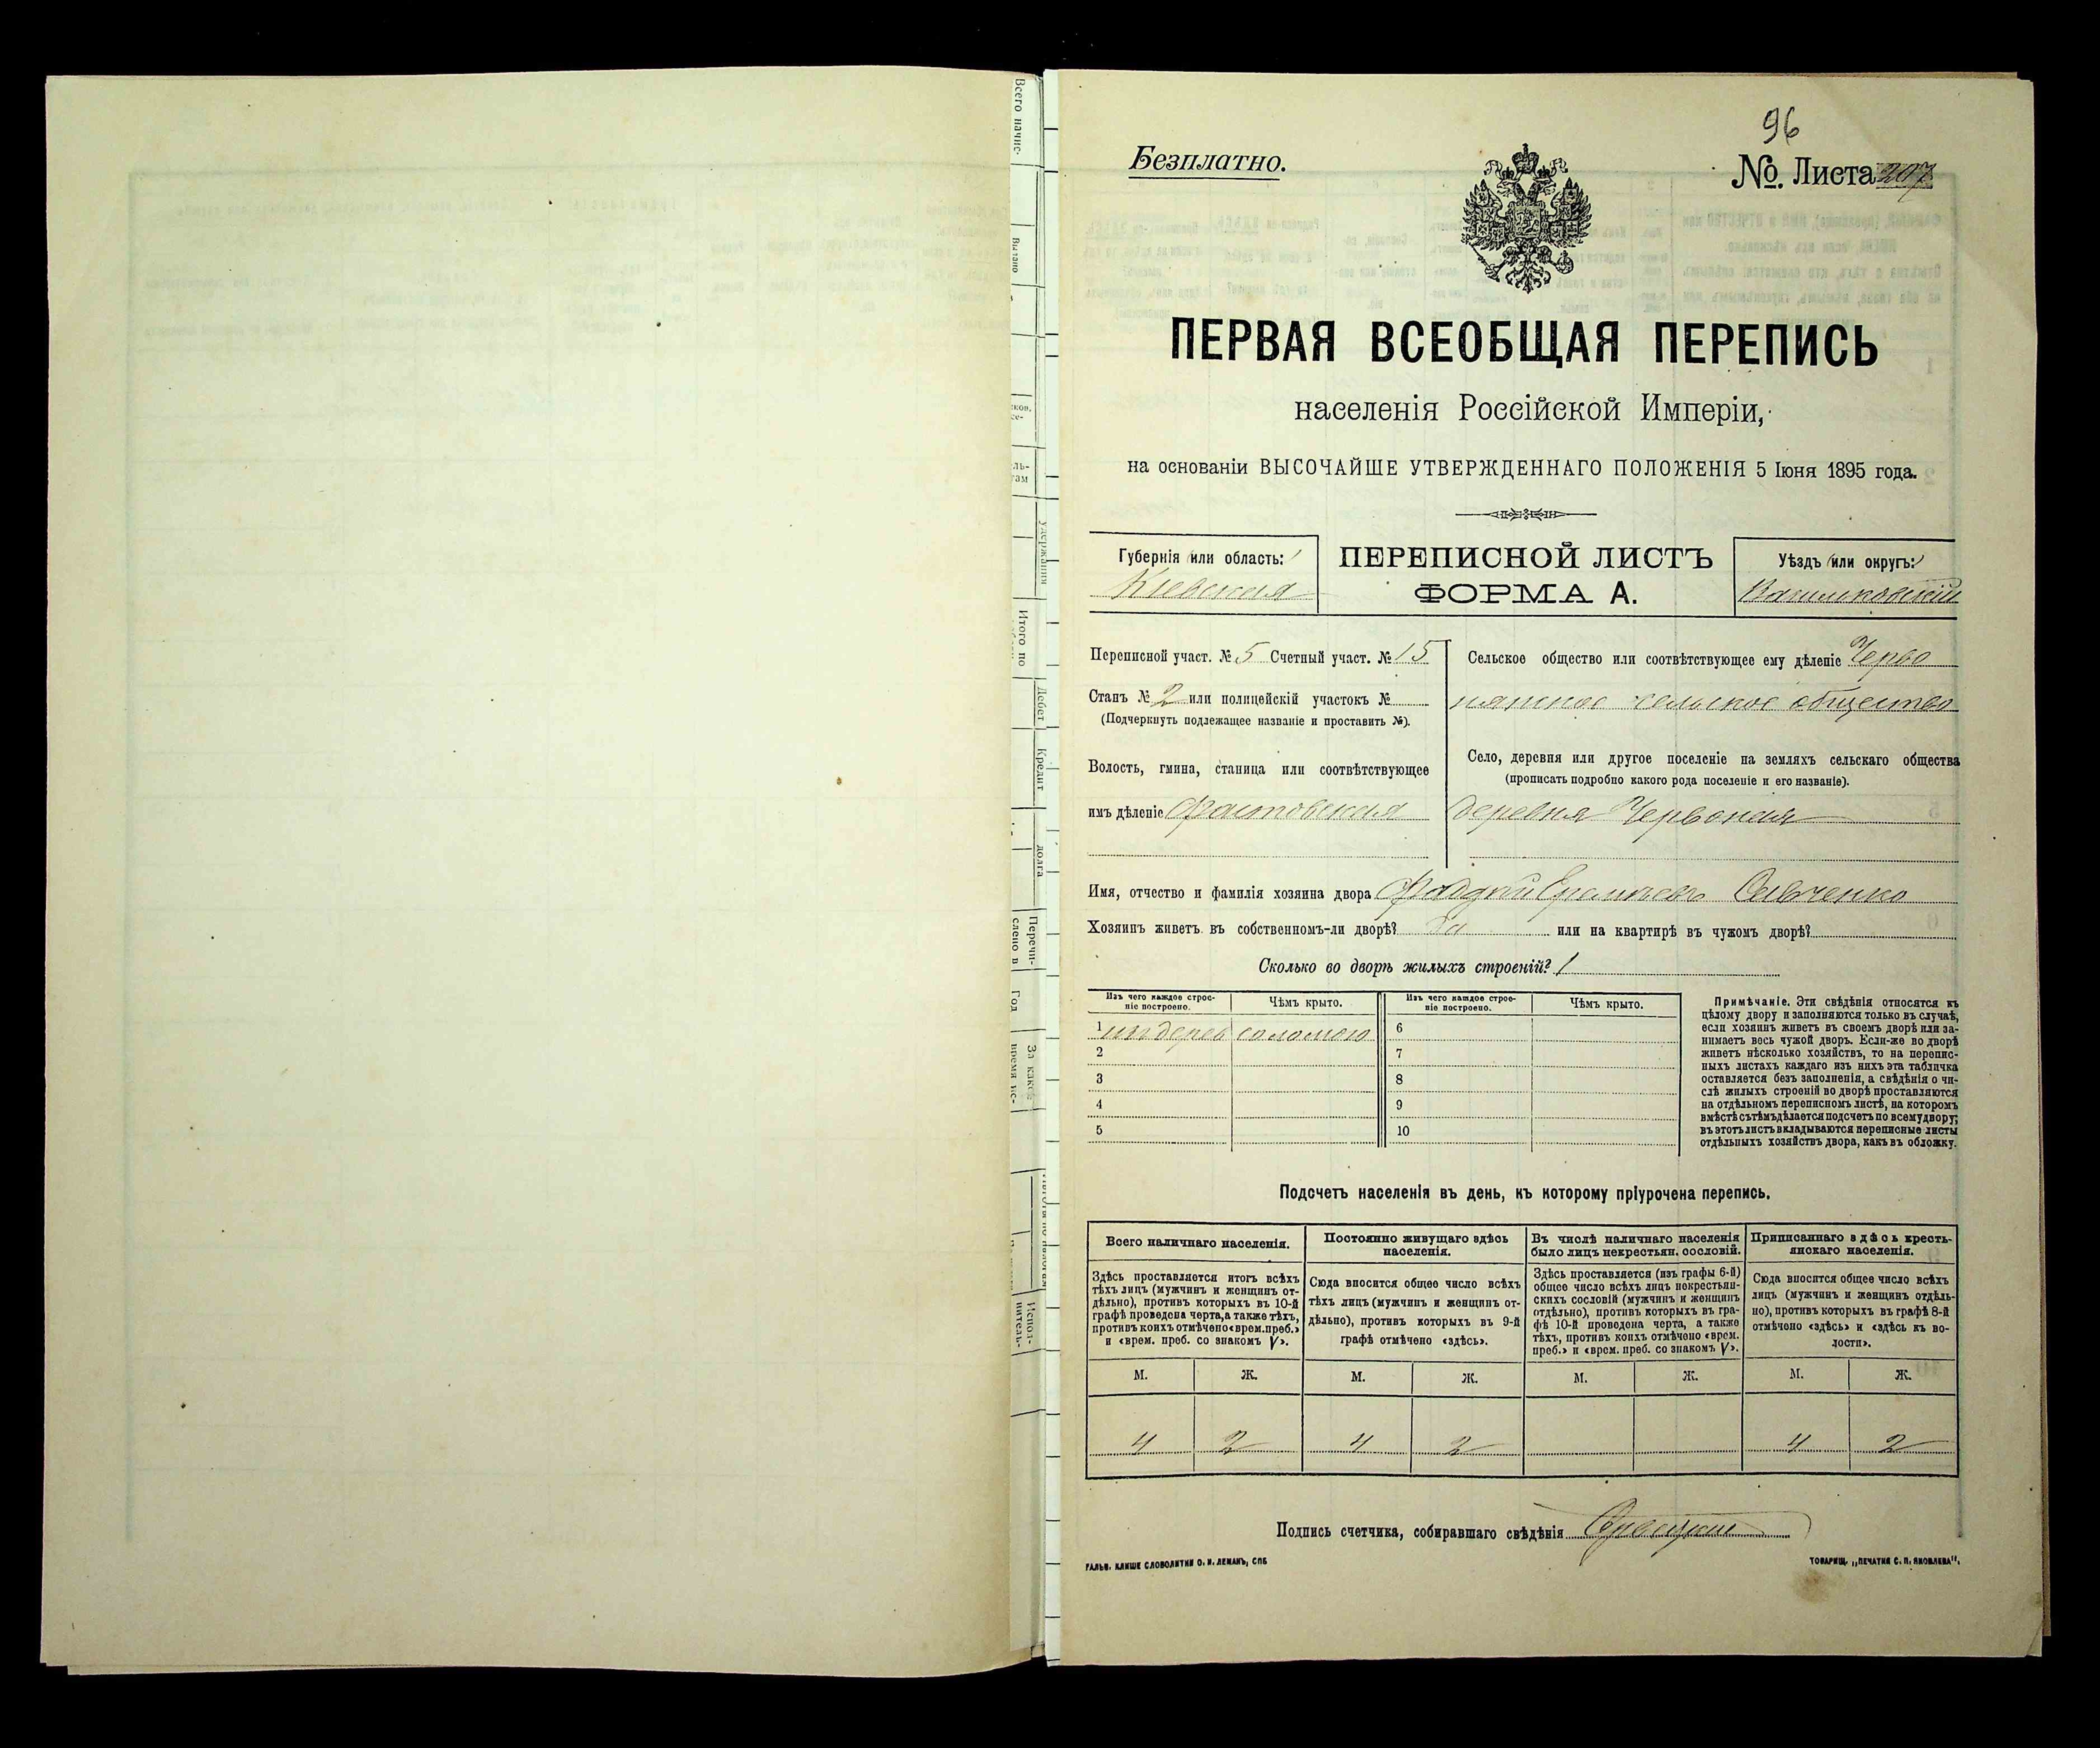 96
Безплатно.
№. Листа 207
ПЕРВАЯ ВСЕОБЩАЯ ПЕРЕПИСЬ
населенія Россійской Имперіи,
на основаніи ВЫСОЧАЙШЕ УТВЕРЖДЕННАГО ПОЛОЖЕНІЯ 5 Іюня 1895 года.
Губернія или область:
Кіевская
ПЕРЕПИСНОЙ ЛИСТЪ
ФОРМА А.
Уѣздъ или округъ:
Васильковскій
Переписной участ. № 5 Счетный участ. № 15
Станъ № 2 или полицейскій участокъ №
(Подчеркнуть подлежащее названіе и проставить №).
Волость, гмина, станица или соотвѣтствующее
имъ дѣленіе Фастовская
Сельское общество или соотвѣтствующее ему дѣленіе Черво
нянское сельское общество
Село, деревня или другое поселеніе на земляхъ сельскаго общества
(прописать подробно какого рода поселеніе и его названіе).
деревня Червоная
Имя, отчество и фамилія хозяина двора Савченко
Хозяинъ живетъ въ собственномъ-ли дворѣ? да или на квартирѣ въ чужомъ дворѣ?
Сколько во дворѣ жилыхъ строеній? 1
Изъ чего каждое строе-
ніе построено.
Чѣмъ крыто.
Изъ чего каждое строе-
ніе построено.
Чѣмъ крыто.
1 изъ дерев соломою 6
2 7
3 8
4 9
5 10
Примѣчаніе. Эти свѣдѣнія относятся къ
цѣлому двору и заполняются только въ случаѣ,
если хозяинъ живетъ въ своемъ дворѣ или за-
нимаетъ весь чужой дворъ. Если-же во дворѣ
живетъ нѣсколько хозяйствъ, то на перепис-
ныхъ листахъ каждаго изъ нихъ эта табличка
оставляется безъ заполненія, а свѣдѣнія о чи-
слѣ жилыхъ строеній во дворѣ проставляются
на отдѣльномъ переписномъ листѣ, на которомъ
вмѣстѣ съ тѣмъ дѣлается подсчетъ по всему двору;
въ этотъ листъ вкладываются переписные листы
отдѣльныхъ хозяйствъ двора, какъ въ обложку.
Подсчетъ населенія въ день, къ которому пріурочена перепись.
Всего наличнаго населенія.
Здѣсь проставляется итогъ всѣхъ
тѣхъ лицъ (мужчинъ и женщинъ от-
дѣльно), противъ которыхъ въ 10-й
графѣ проведена черта, а также тѣхъ,
противъ коихъ отмѣчено «врем. преб.»
и «врем. преб. со знакомъ V».
Постоянно живущаго здѣсь
населенія.
Сюда вносится общее число всѣхъ
тѣхъ лицъ (мужчинъ и женщинъ от-
дѣльно), противъ которыхъ въ 9-й
графѣ отмѣчено «здѣсь».
Въ числѣ наличнаго населенія
было лицъ некрестьян. сословій.
Здѣсь проставляется (изъ графы 6-й)
общее число всѣхъ лицъ некрестьян-
скихъ сословій (мужчинъ и женщинъ
отдѣльно), противъ которыхъ въ гра-
фѣ 10-й проведена черта, а также
тѣхъ, противъ коихъ отмѣчено «врем.
преб.» и «врем. преб. со знакомъ V».
Приписаннаго здѣсь кресть-
янскаго населенія.
Сюда вносится общее число всѣхъ
лицъ (мужчинъ и женщинъ отдѣль-
но), противъ которыхъ въ графѣ 8-й
отмѣчено «здѣсь» и «здѣсь къ во-
лости».
М. Ж. М. Ж. М. Ж. М. Ж.
4 2 4 2 4 2
Подпись счетчика, собиравшаго свѣдѣнія
ГАЛЬВ. КЛИШЕ СЛОВОЛИТНИ О. И. ЛЕМАНЪ, СПБ
ТОВАРИЩ. „ПЕЧАТНЯ С. П. ЯКОВЛЕВА".